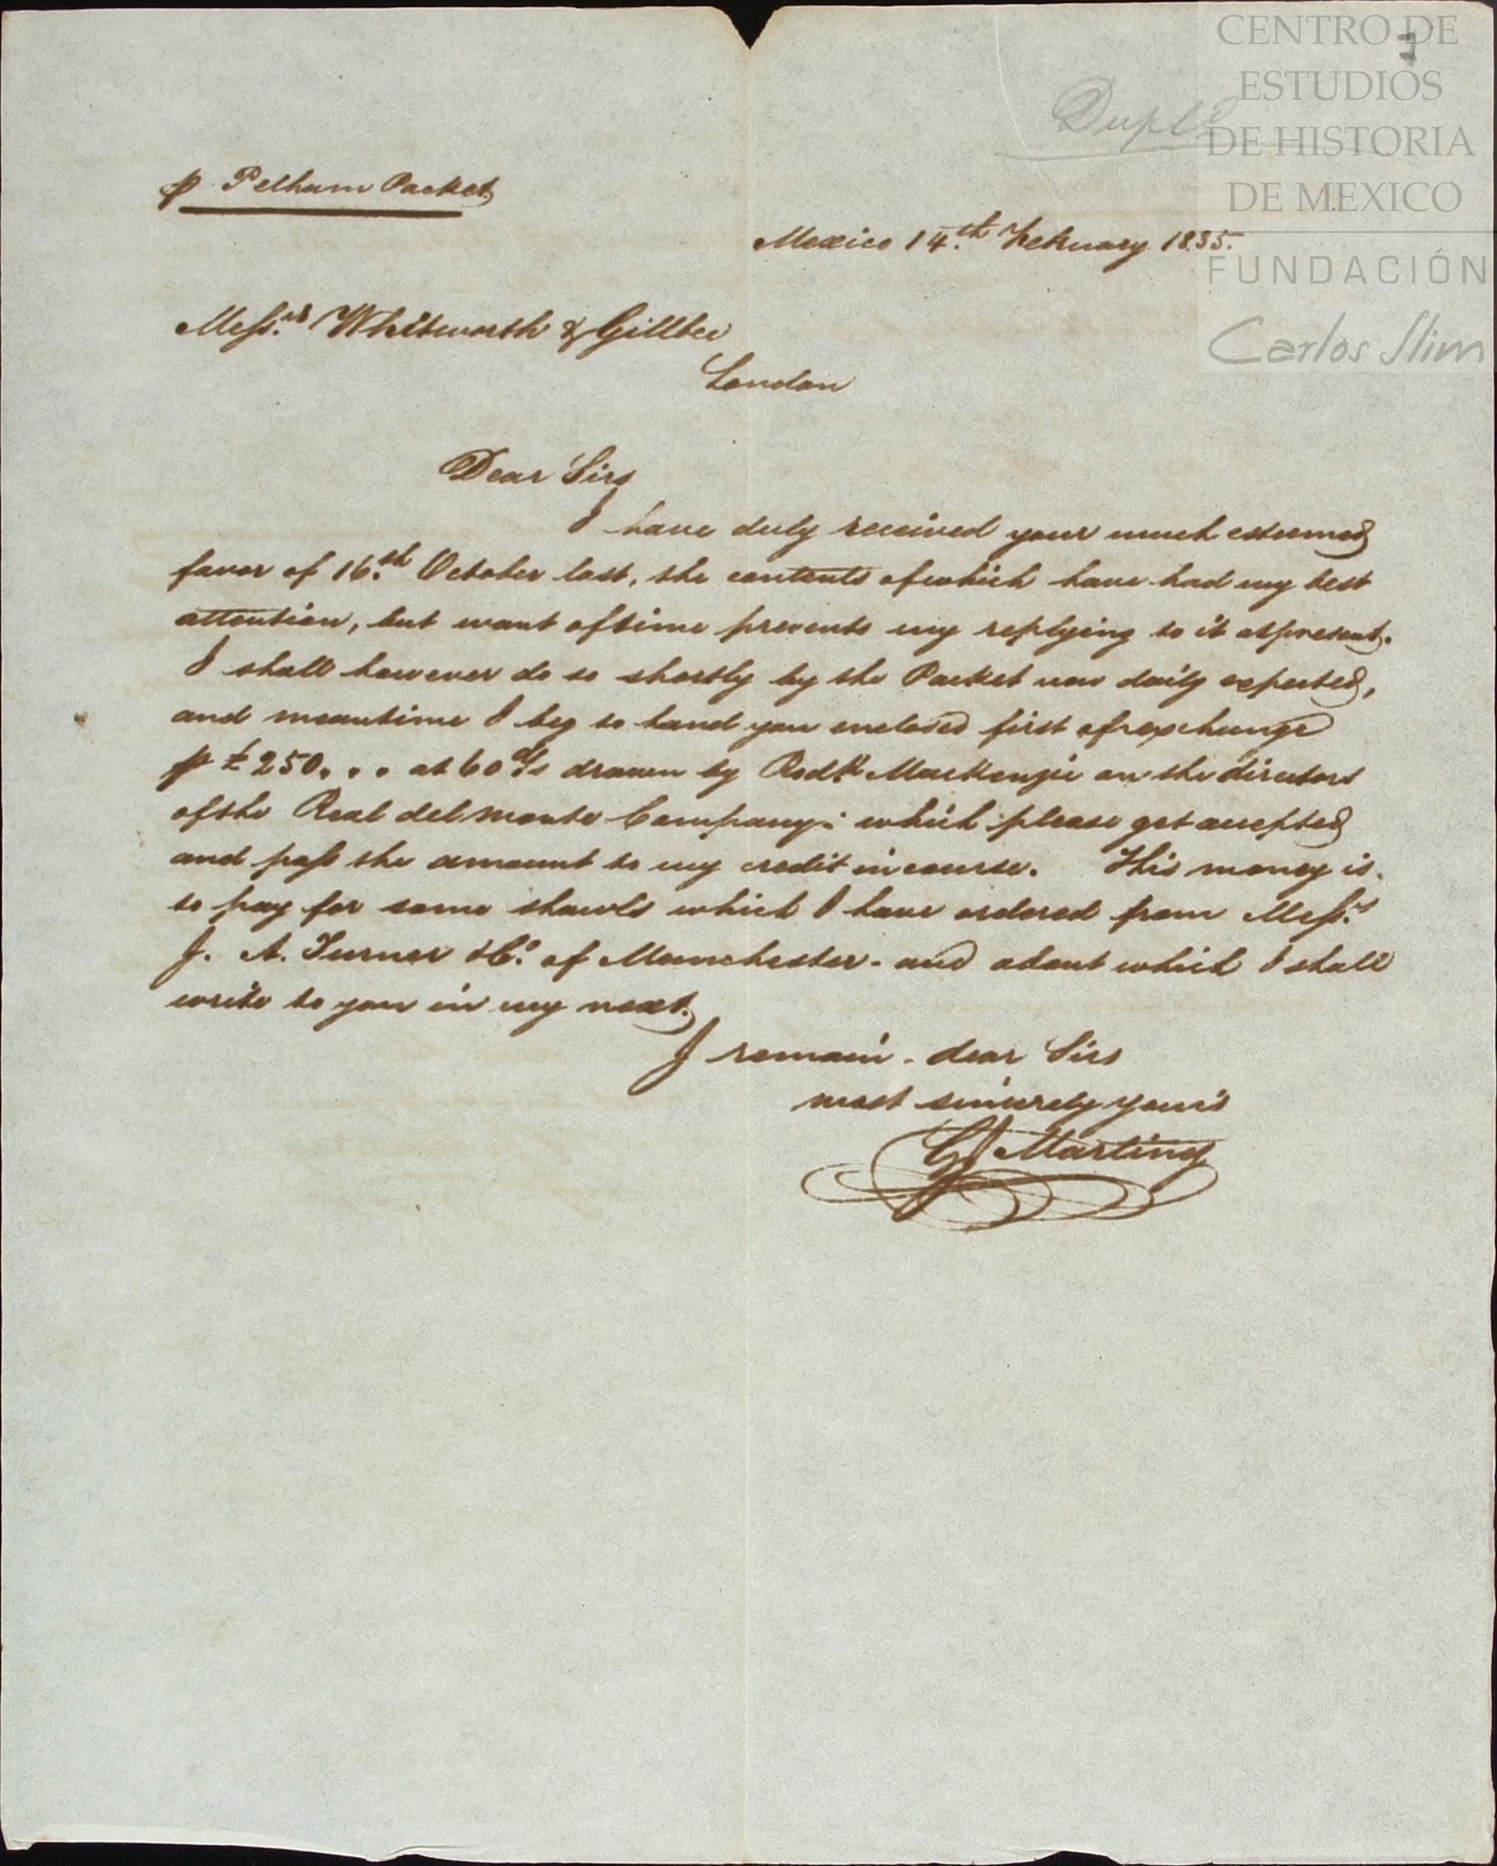 CENTRO DE
ESTUDIOS
DE HISTORIA
DE MEXICO
FUNDACIÓN
Carlos Slim
3
Dupl
p Pelham Packet
Mexico 14th February 1835.
Messrs Whitworth & Gillbee
London
Dear Sirs
I have duly received your much esteemed
favor of 16th October last, the contents of which have had my best
attention, but want of time prevents my replying to it at present.
I shall however do so shortly by the Packet now daily expected,
and meantime I beg to hand you enclosed first of exchange
p £250. . . at 60 d/s drawn by Rodk Mackenzie on the directors
of the Real del Monte Company: which please get accepted
and pass the amount to my credit in course. This money is.
to pay for some shawls which I have ordered from Messrs
J. A. Turner & Co. of Manchester - and about which I shall
write to you in my next.
I remain - dear Sirs
most sincerely your's
G Martiny